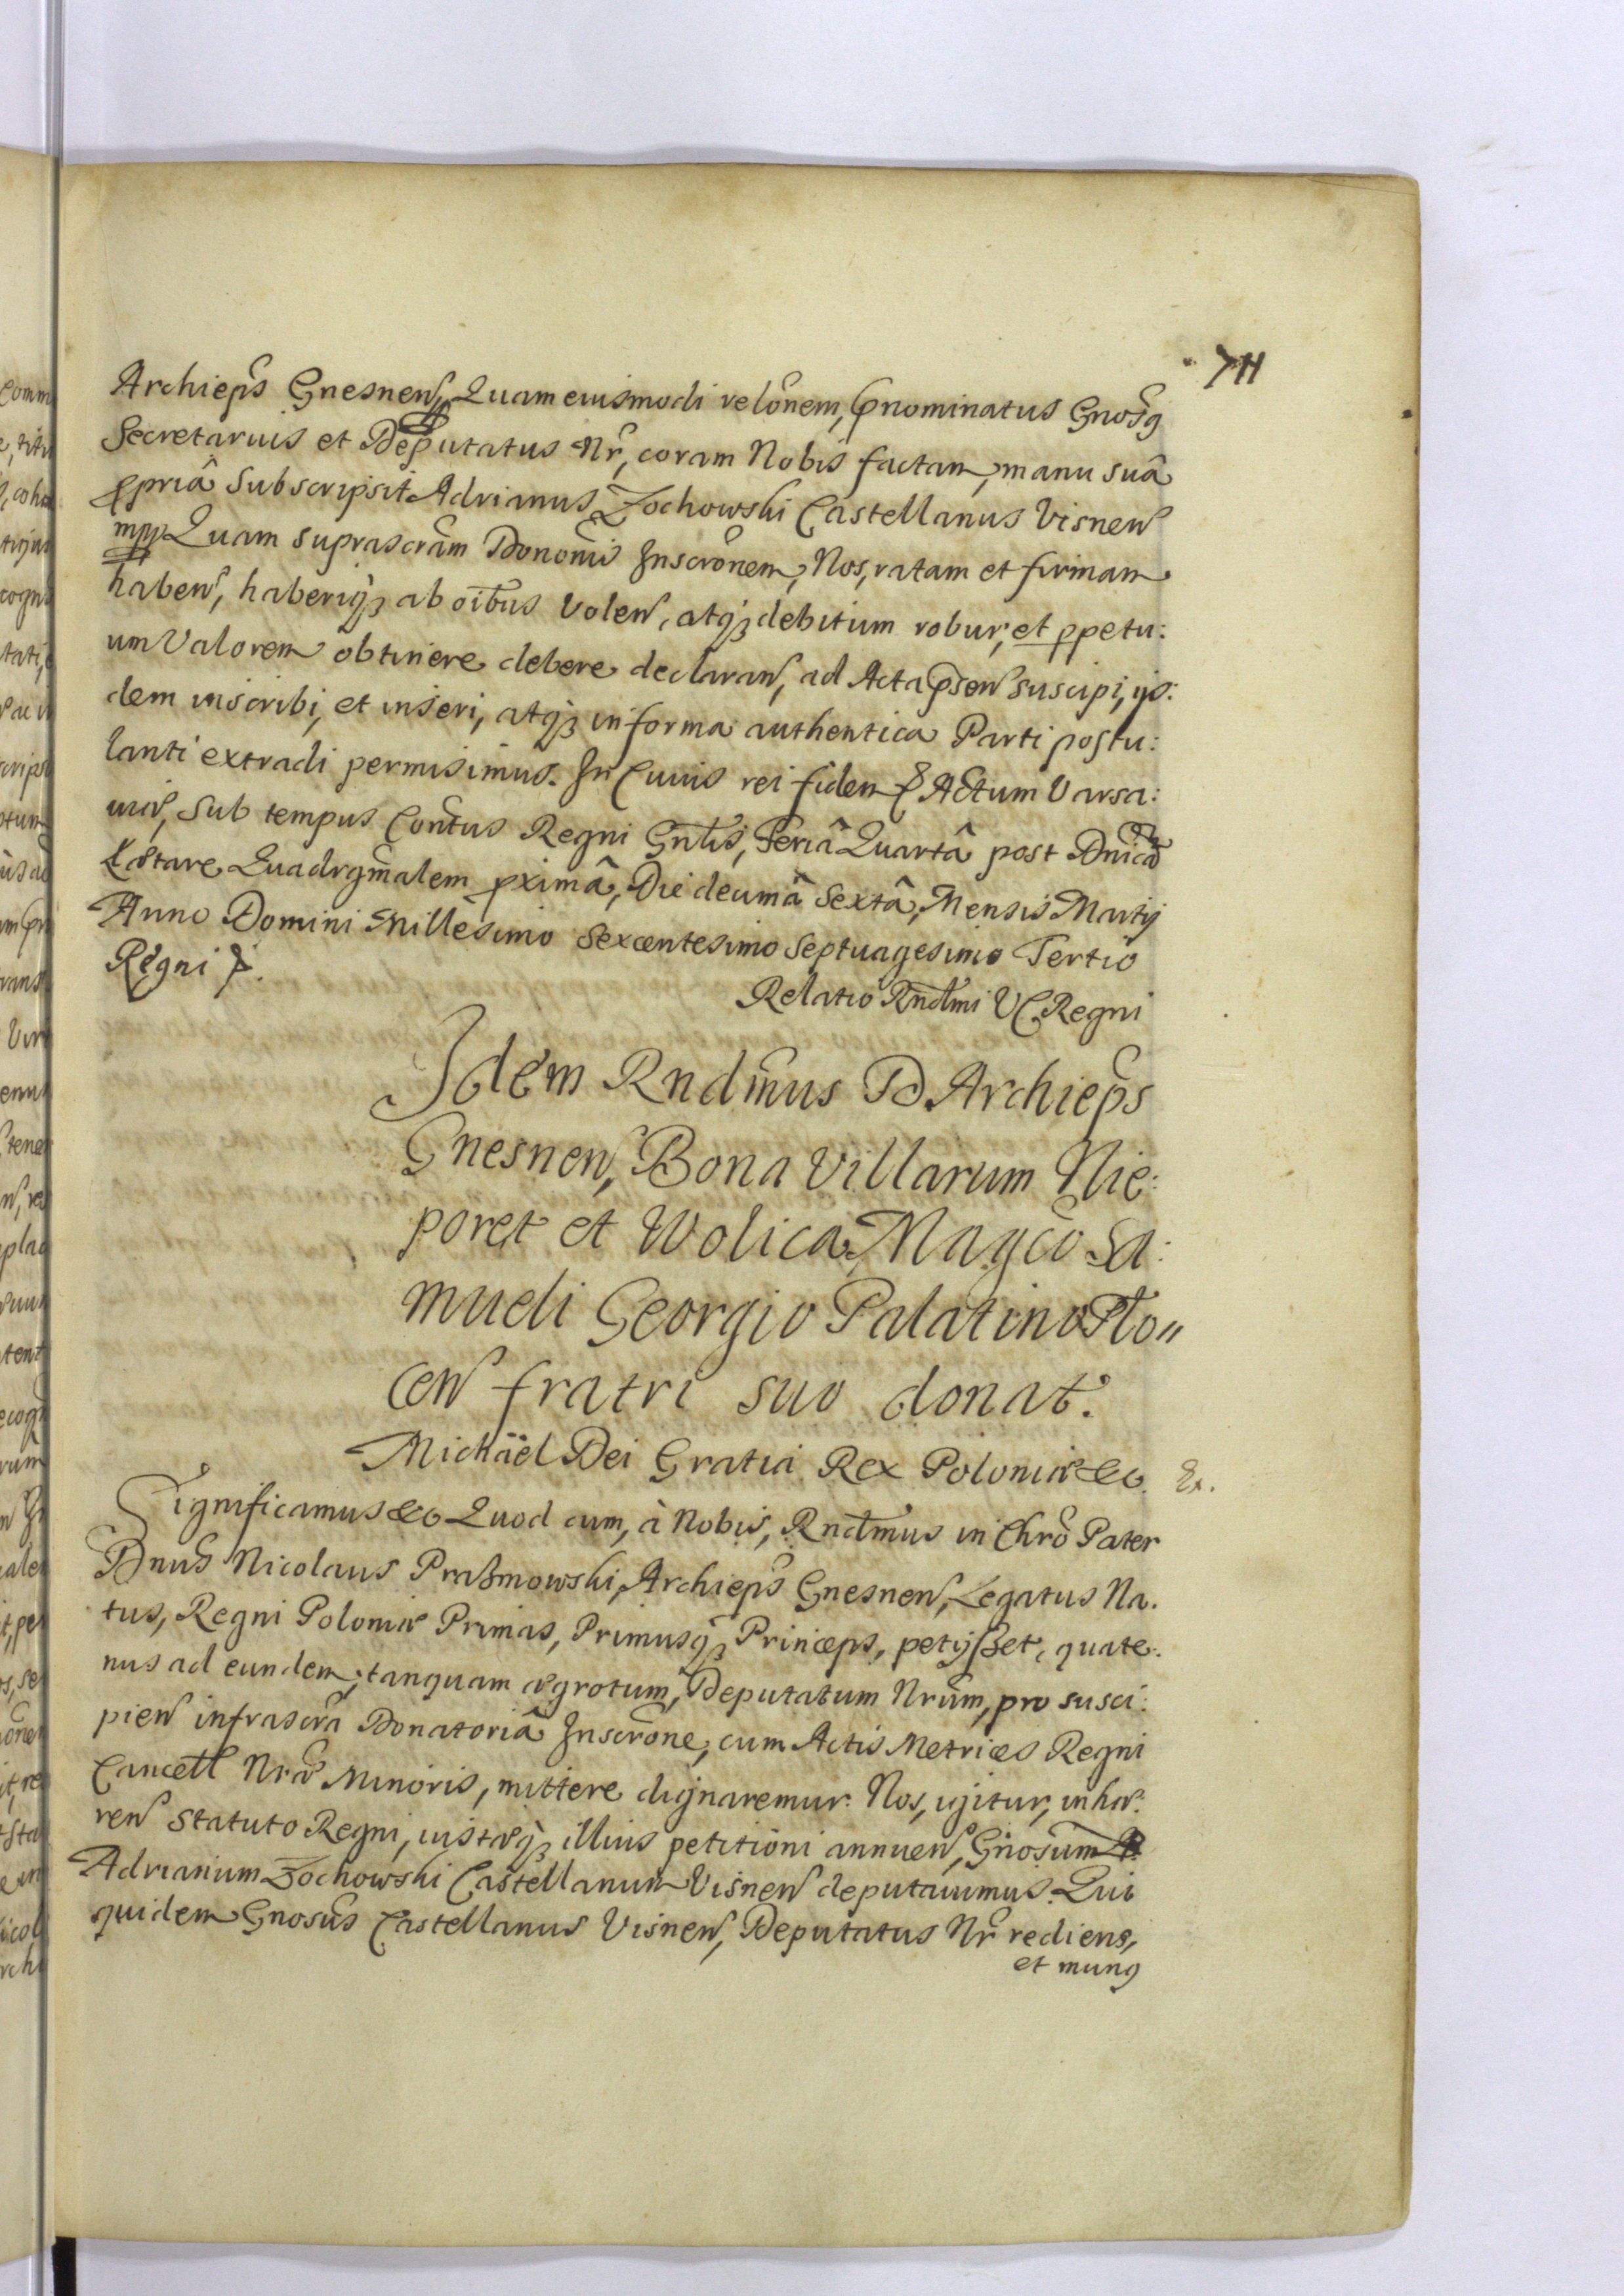 711
Archiepūs Gnesnen̄, Quam eiusmodi relōnem, p̄nominatus Gnōsq
Secretarius et Deputatus Nr̄, coram Nobis factam, manu suâ
ppriâ Subscripsit Adrianus Żochowski Castellanus Visnen̄
mpp Quam suprascrām Donōnis Inscrōnem, Nos, ratam et firmam
haben̄, haberiq3 ab oībus Volen̄, atq3 debitum robur, et ppetu:
um Valorem obtinere debere declaran̄, ad Acta p̄sen̄ suscipi, ijs:
dem inscribi, et inseri, atq3 in forma authentica Parti postu:
lanti extradi permisimus. In Cuius rei fidem & Actum Varsa:
uiæ, Sub tempus Conūtus Regni Gnlīs, Feriâ Quartâ post Dnicā
Lætare Quadrgm̄alem pximâ, Die decimâ Sextâ, Mensis Martij
Anno Domini Millesimo Sexcentesimo Septuagesimo Tertio
Regni &.
Relatio Rndm̄i VC. Regni
Idem Rndm̄us D Archiepūs
Gnesnen̄, Bona Villarum Nie:
poret et Wolica, Magcō Sa:
mueli Georgio Palatino Plo"
cen̄ fratri suo donat.
Michäel Dei Gratia Rex Poloniæ &c. Ex.
Significamus &c Quod cum, à Nobis, Rndm̄us in Chrō Pater
Dnūs Nicolaus Praßmowski, Archiepūs Gnesnen̄, Legatus Na.
tus, Regni Poloniæ Primas, Primusq3 Princeps, petijßet, quate:
nus ad eundem, tanquam ægrotum, Deputatum Nrūm, pro susci:
pien̄ infrascrā Donatoriâ Inscrōne, cum Actis Metrices Regni
Cancell Nrǣ Minoris, mittere dignaremur. Nos, igitur, inhæ:
ren̄ Statuto Regni, iustæq3 illius petitioni annuen̄, Gnosūm
Adrianum Żochowski Castellanum Visnen̄ deputauimus. Qui
quidem Gnosūs Castellanus Visnen̄, Deputatus Nr̄ rediens,
et munq